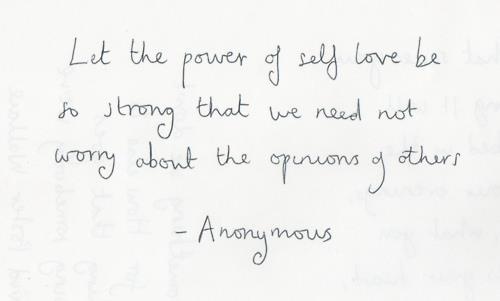 Let the power of self love be
so strong that we need not
worry about the opinions of others
- Anonymous